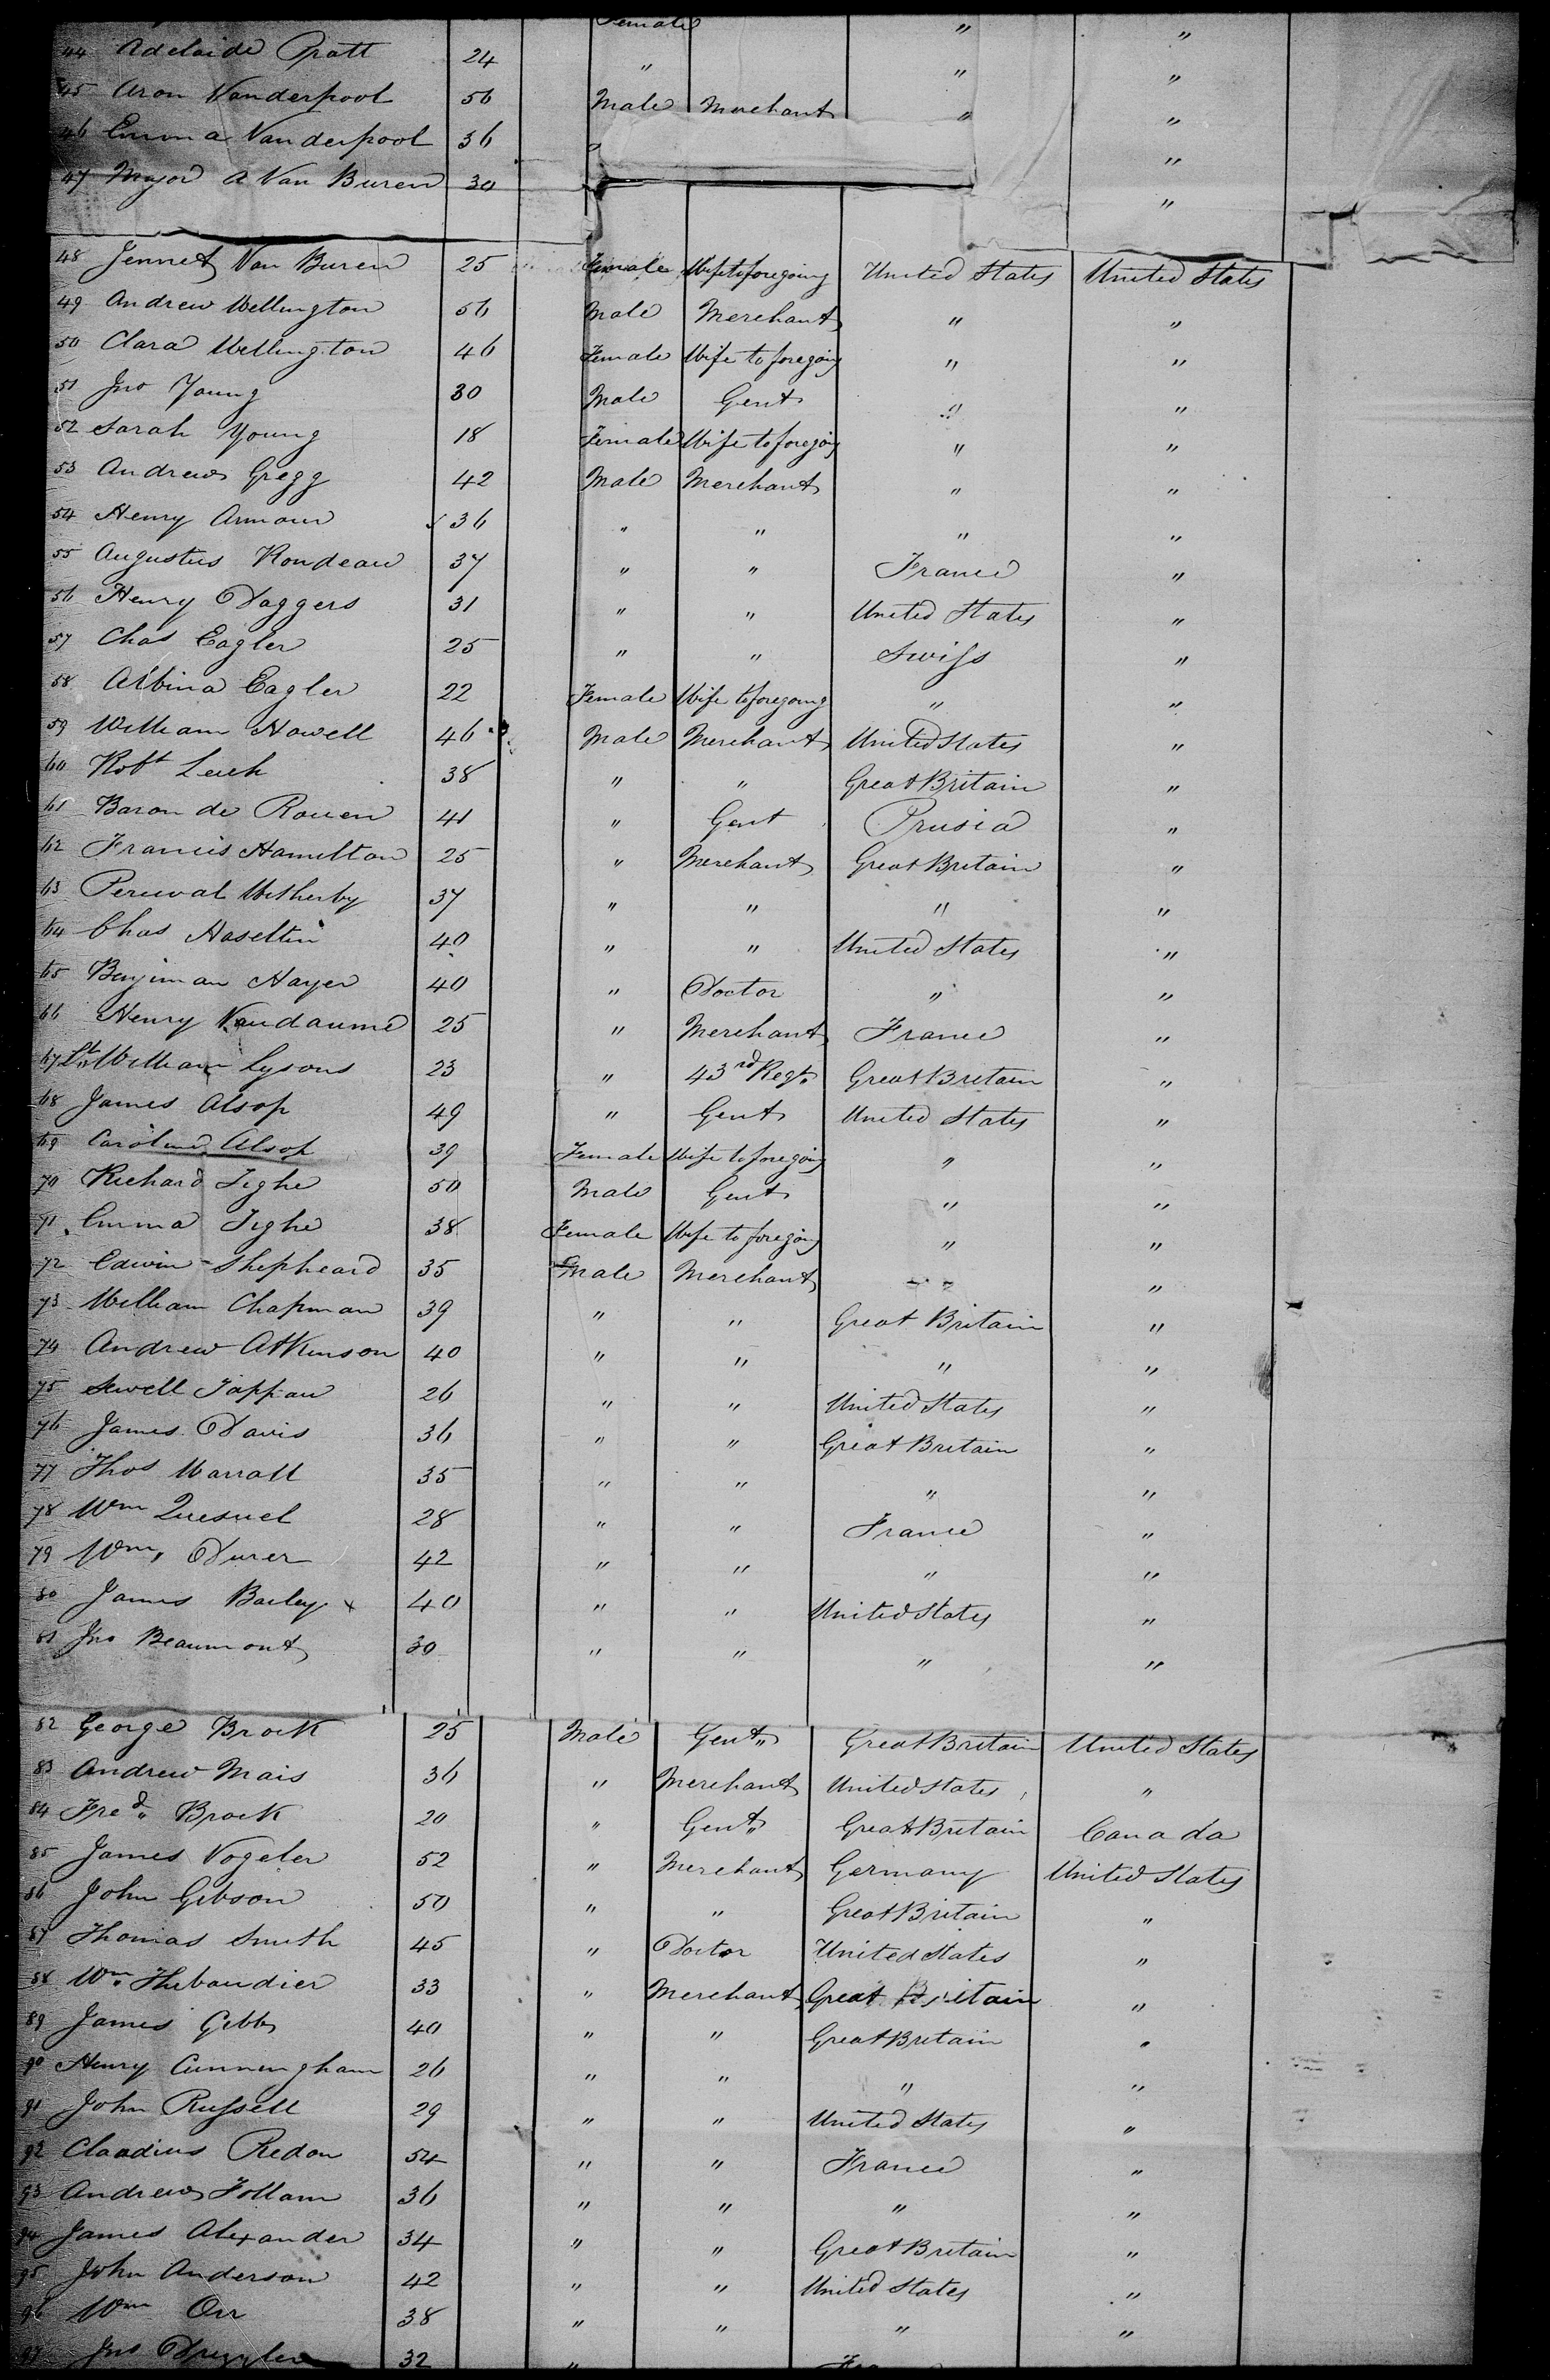 Female " "
44 Adelaide Pratt 24 " " "
45 Aron Vanderpool 56 Male Merchant " "
46 Emma Vanderpool 36 " "
47 Major A Van Buren 30 "
48 Jennet Van Buren 25 Female Wife to foregoing United States United States
49 Andrew Wellington 56 Male Merchant " "
50 Clara Wellington 46 Female Wife to foregoing " "
51 Jno Young 30 Male Gent " "
52 Sarah Young 18 Female Wife to foregoing " "
53 Andrew Gregg 42 Male Merchant " "
54 Henry Armour 36 " " " "
55 Augustus Rondeau 37 " " France "
56 Henry Daggers 31 " " United States "
57 Chas Eagler 25 " " Swiss "
58 Albina Eagler 22 Female Wife to foregoing " "
59 William Howell 46 Male Merchant United States "
60 Robt Leech 38 " " Great Britain "
61 Baron de Rouen 41 " Gent Prusia "
62 Francis Hamilton 25 " Merchant Great Britain "
63 Percival Wetherby 37 " " " "
64 Chas Haseltin 40 " " United States "
65 Benjiman Hayes 40 " Doctor " "
66 Henry Vandaume 25 " Merchant France "
67 Lt William Lysons 23 " 43rd Regt. Great Britain "
68 James Alsop 49 " Gent United States "
69 Caroline Alsop 39 Female Wife to foregoing " "
70 Richard Tighe 50 Male Gent " "
71 Emma Tighe 38 Female Wife to foregoing " "
72 Edwin Shepheard 35 Male Merchant " "
73 William Chapman 39 " " Great Britain "
74 Andrew Atkinson 40 " " " "
75 Sewell Tappan 26 " " United States "
76 James Davis 36 " " Great Britain "
77 Thos Warrall 35 " " " "
78 Wm Quesnel 28 " " France "
79 Wm, Durer 42 " " " "
80 James Bailey x 40 " " United States "
81 Jno Beaumont 30 " " " "
82 George Brock 25 Male Gent" Great Britain United States
83 Andrew Mais 36 " Merchant United States "
84 Fred" Brock 20 " Gent" Great Britain Canada
85 James Vogeler 52 " Merchant Germany United States
86 John Gibson 50 " " Great Britain "
87 Thomas Smith 45 " Doctor United States "
88 Wm. Thebaudier 33 " Merchant Great Britain "
89 James Gibbs 40 " " Great Britain "
90 Henry Cunningham 26 " " " "
91 John Russell 29 " " United States "
92 Claudius Redon 54 " " France "
93 Andrew Follam 36 " " " "
94 James Alexander 34 " " Great Britain "
95 John Anderson 42 " " United States "
96 Wm Orr 38 " " " "
97 Jno 32 "